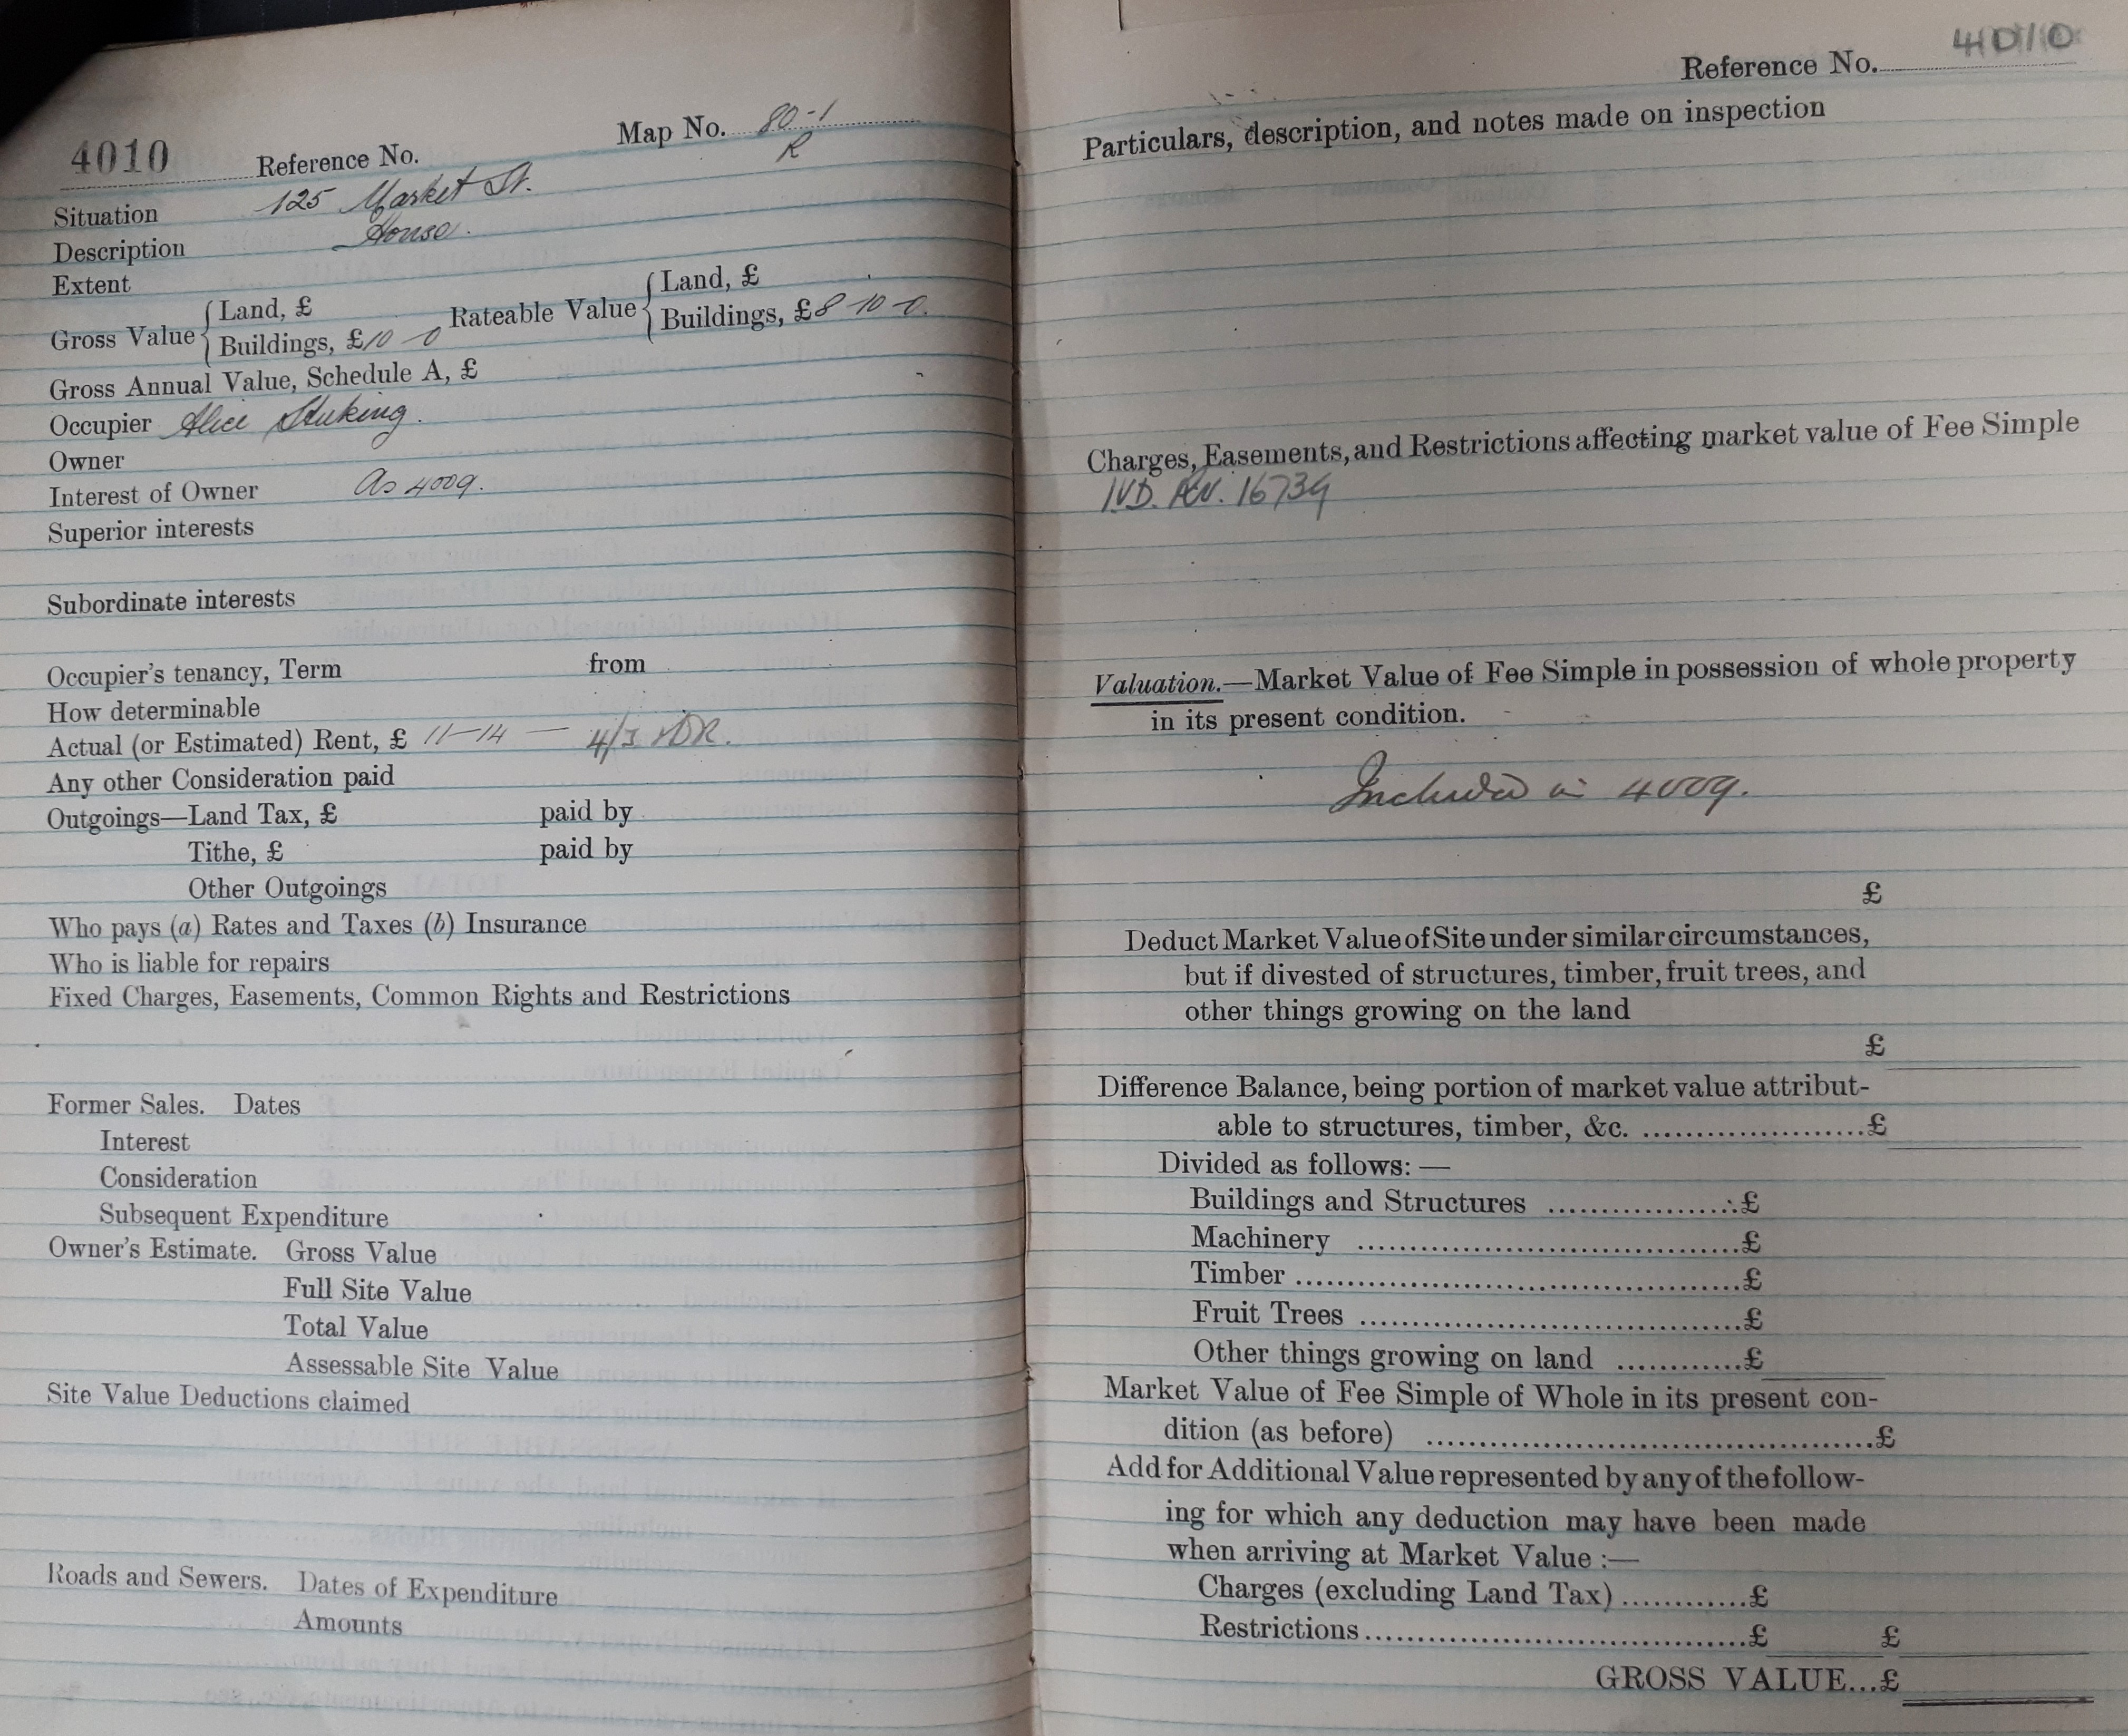 4010 Reference No. Map No. 80-1
R
Situation 125 Market St.
Description House.
Extent
Gross Value { Land, £ Rateable Value { Land, £
Buildings, £10 - 0 Buildings, £8-10-0.
Gross Annual Value, Schedule A, £
Occupier Alice
Owner
Interest of Owner As 4009.
Superior interests
Subordinate interests
Occupier's tenancy, Term from
How determinable
Actual (or Estimated) Rent, £ 11-14 —
Any other Consideration paid
Outgoings—Land Tax, £ paid by
Tithe, £ paid by
Other Outgoings
Who pays (a) Rates and Taxes (b) Insurance
Who is liable for repairs
Fixed Charges, Easements, Common Rights and Restrictions
Former Sales. Dates
Interest
Consideration
Subsequent Expenditure
Owner's Estimate. Gross Value
Full Site Value
Total Value
Assessable Site Value
Site Value Deductions claimed
Roads and Sewers. Dates of Expenditure
Amounts
Reference No. 4010
Particulars, description, and notes made on inspection
Charges, Easements, and Restrictions affecting market value of Fee Simple
16739
Valuation.—Market Value of Fee Simple in possession of whole property
in its present condition.
Included in 4009.
£
Deduct Market Value of Site under similar circumstances,
but if divested of structures, timber, fruit trees, and
other things growing on the land
£
Difference Balance, being portion of market value attribut-
able to structures, timber, &c. ......................£
Divided as follows: —
Buildings and Structures ...................£
Machinery .......................................£
Timber .............................................£
Fruit Trees .......................................£
Other things growing on land ............£
Market Value of Fee Simple of Whole in its present con-
dition (as before) .............................................£
Add for Additional Value represented by any of the follow-
ing for which any deduction may have been made
when arriving at Market Value :—
Charges (excluding Land Tax) ............£
Restrictions ......................................£ £
GROSS VALUE...£